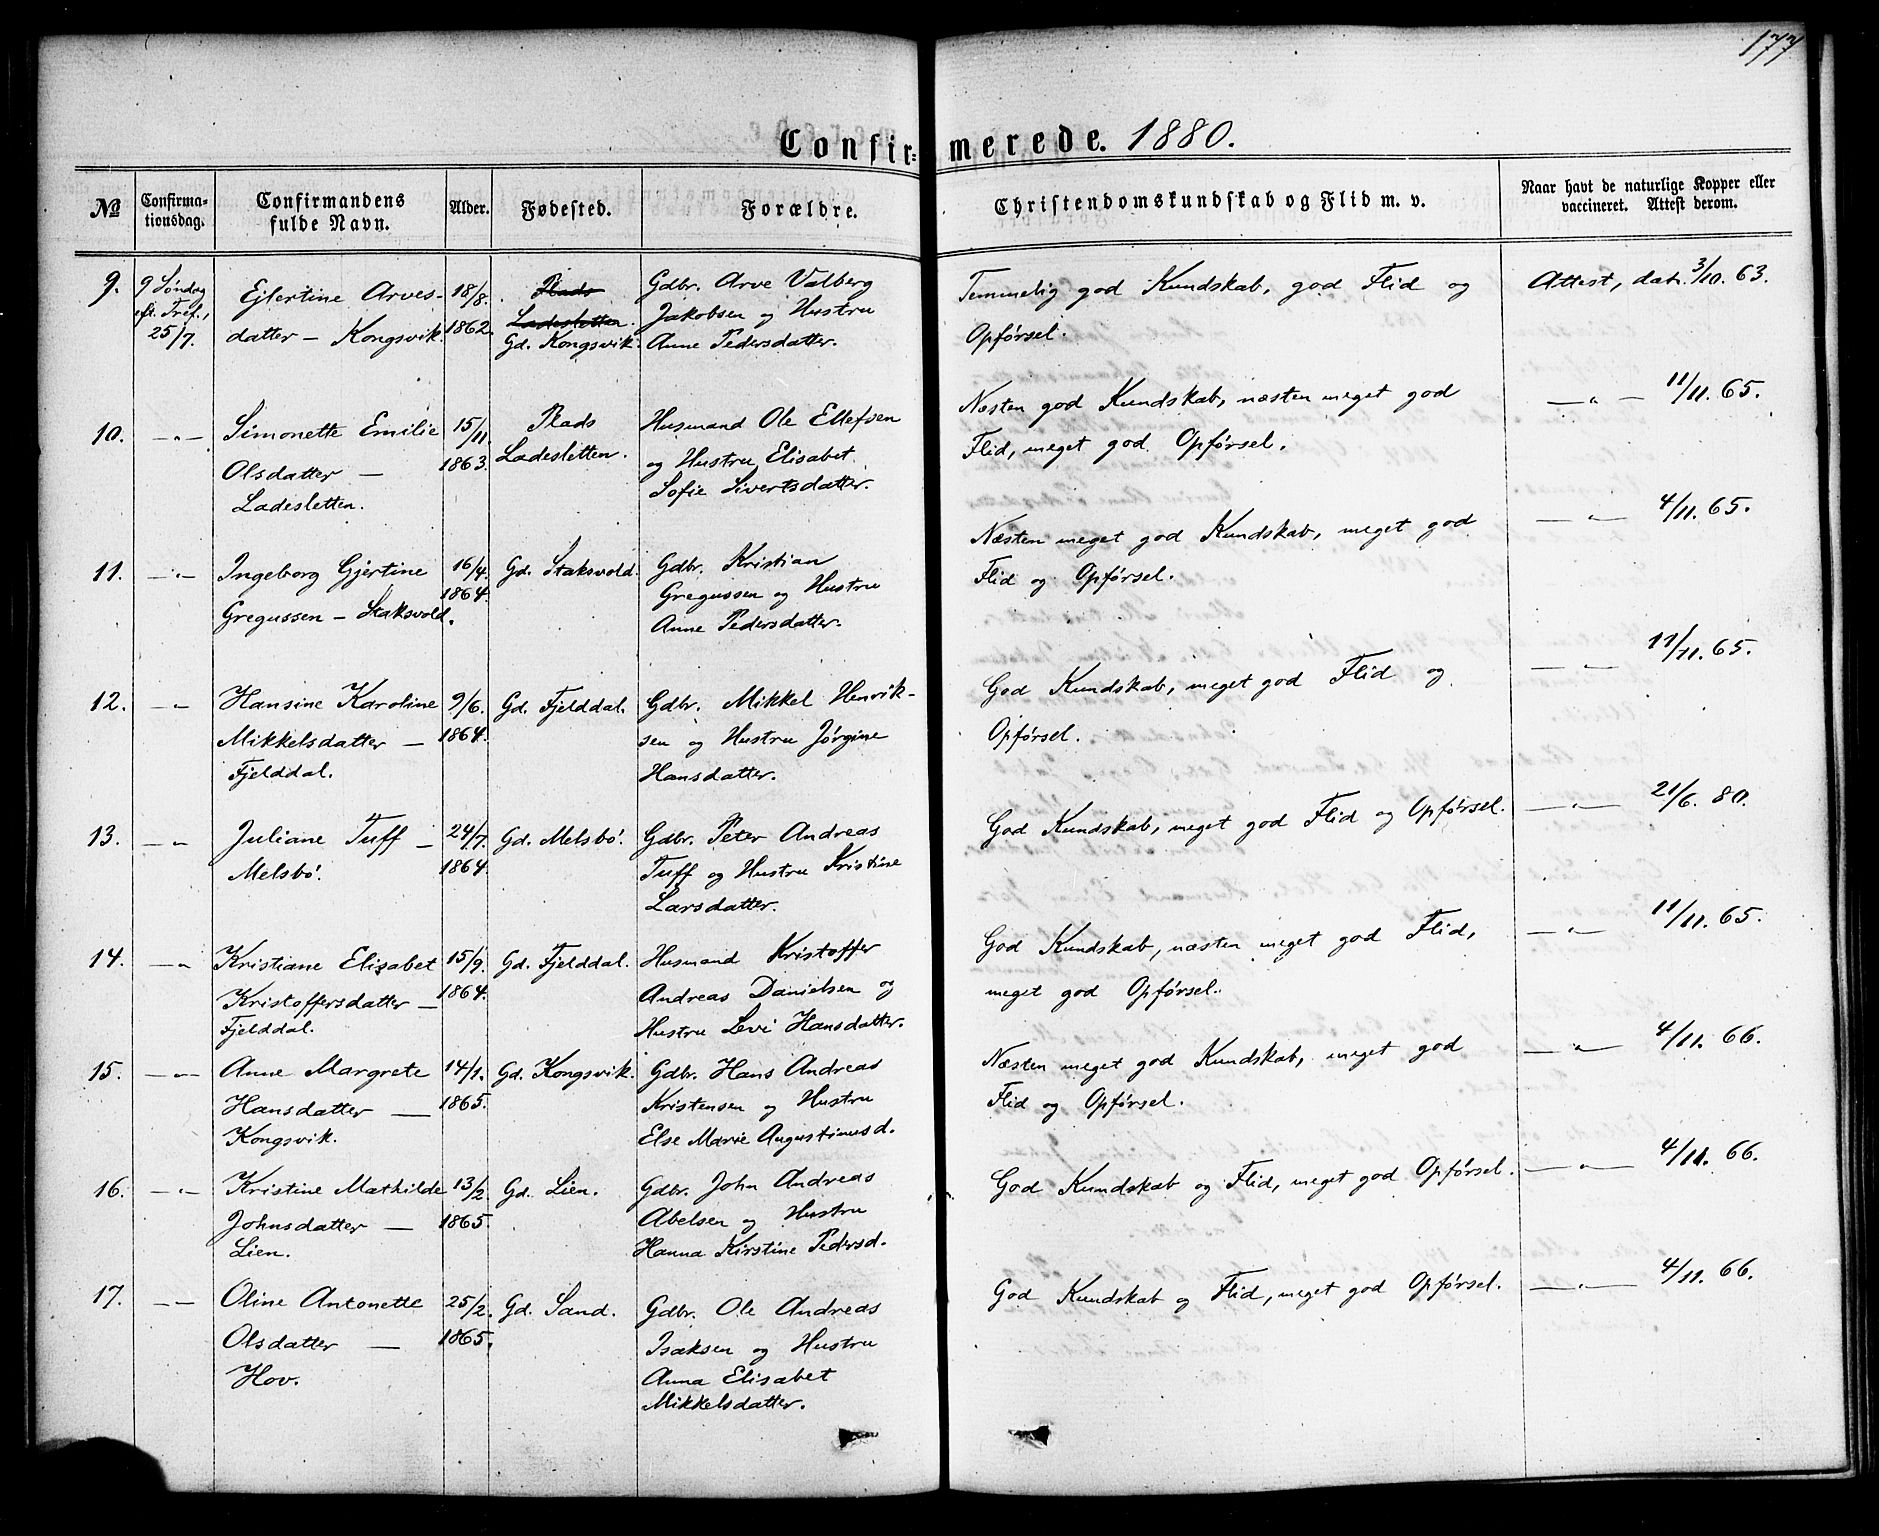 177
Confirmerede. 1880.
№ Confirmationsdag. Confirmandens fulde Navn. Alder. Fødested. Forældre. Christendomskundskab og Flid m. v. Naar havt de naturlige Kopper eller vaccineret. Attest derom.
9. 9 Søndag Ejlertine Arves- 18/8. Plads Gdbr. Arve Valberg Temmelig god Kundskab, god Flid og Attest, dat. 3/10. 63.
eft. Tref., datter – Kongsvik. 1862. Ladesletten. Jakobsen og Hustru Opførsel.
25/7. Gd. Kongsvik. Anne Pedersdatter.
10. —„— Simonette Emilie 15/11. Plads Husmand Ole Ellefsen Næsten god Kundskab, næsten meget god —„— 11/11. 65.
Olsdatter — 1863. Ladesletten. og Hustru Elisabet Flid, meget god Opførsel.
Ladesletten. Sofie Sivertsdatter.
11. —„— Ingeborg Gjertine 16/4. Gd. Staksvold. Gdbr. Kristian Næsten meget god Kundskab, meget god —„— 4/11. 65.
Gregussen – Staksvold. 1864. Gregussen og Hustru Flid og Opførsel.
Anne Pedersdatter.
12. —„ Hansine Karoline 9/6. Gd. Fjelddal. Gdbr. Mikkel Henrik- God Kundskab, meget god Flid og —„— 11/11. 65.
Mikkelsdatter — 1864. sen og Hustru Jørgine Opførsel.
Fjelddal. Hansdatter.
13. —„ Juliane Tuff — 24/7. Gd. Melsbø. Gdbr. Peter Andreas God Kundskab, meget god Flid og Opførsel. —„— 21/6. 80.
Melsbø. 1864. Tuff og Hustru Kristine
Larsdatter.
14. —„ Kristiane Elisabet 15/9. Gd. Fjelddal. Husmand Kristoffer God Kundskab, næsten meget god Flid, —„— 11/11. 65.
Kristoffersdatter — 1864. Andreas Danielsen og meget god Opførsel.
Fjelddal. Hustru Levi Hansdatter.
15. —„— Anne Margrete 14/1. Gd. Kongsvik. Gdbr. Hans Andreas Næsten meget god Kundskab, meget god —„— 4/11. 66.
Hansdatter — 1865. Kristensen og Hustru Flid og Opførsel.
Kongsvik. Else Marie Augustinusd.
16. —„— Kristine Mathilde 13/2. Gd. Lien. Gdbr. John Andreas God Kundskab og Flid, meget god Opførsel. —„— 4/11. 66.
Johnsdatter — 1865. Abelsen og Hustru
Lien. Hanna Kirstine Pedersd.
17. —— Oline Antonette 25/2. Gd. Sand. Gdbr. Ole Andreas God Kundskab og Flid, meget god Opførsel. —„— 4/11. 66.
Olsdatter — 1865. Isaksen og Hustru
Hov. Anna Elisabet
Mikkelsdatter.